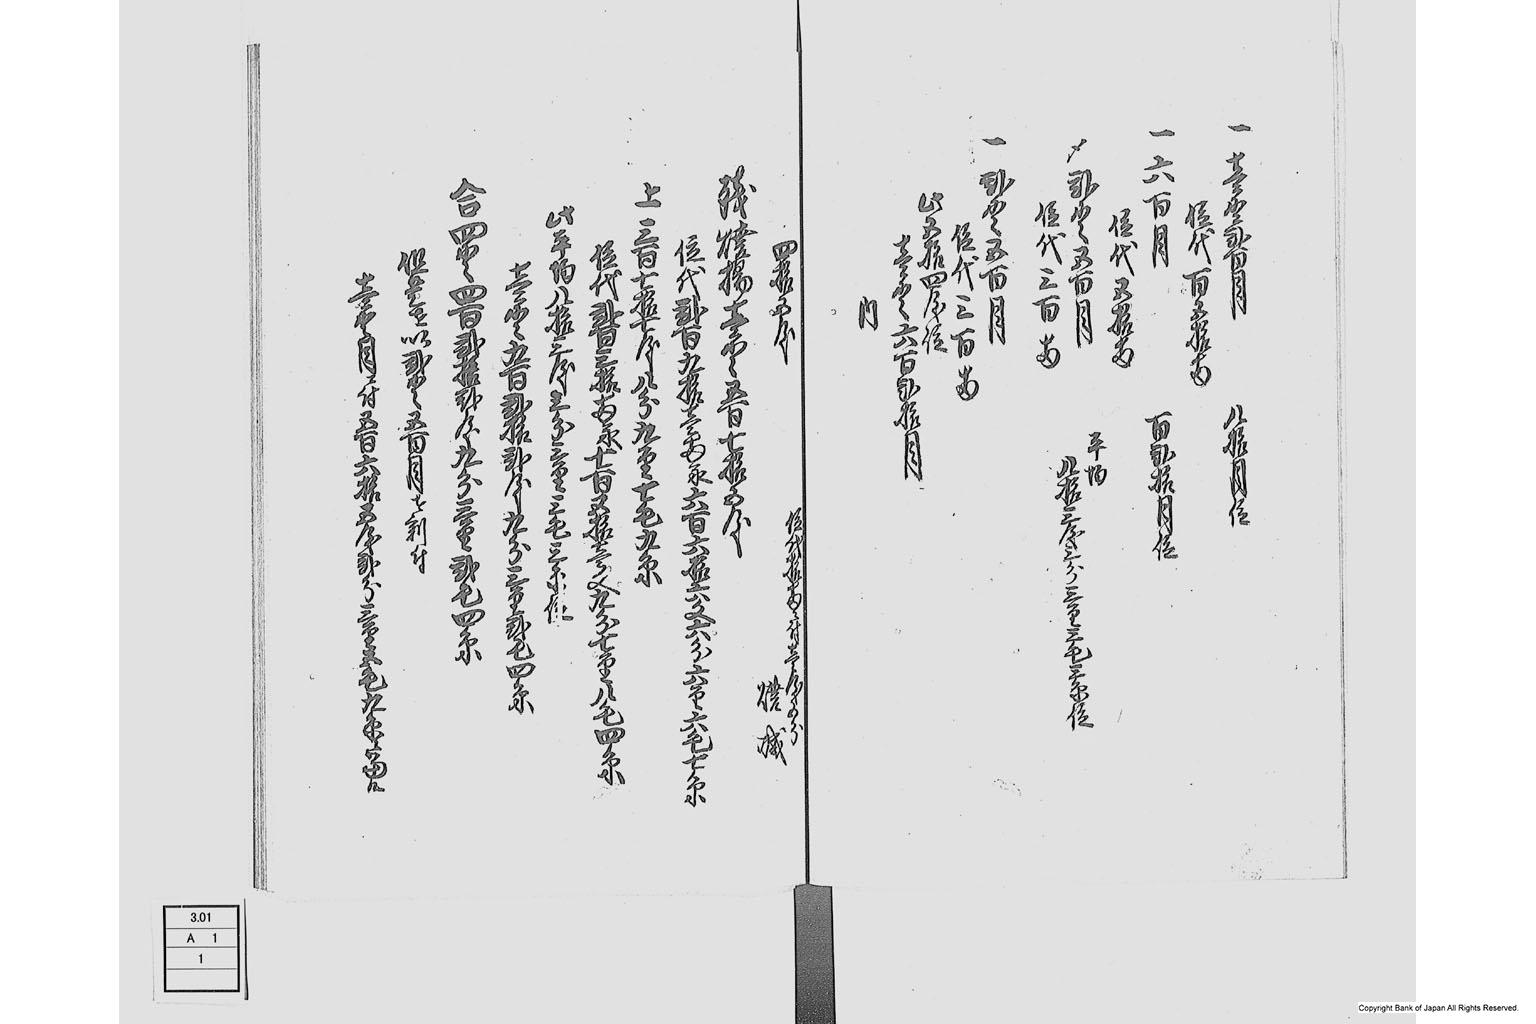 一 壱貫弐百目 八拾目位
位代百五拾両
一 六百目 百弐拾目位
位代五拾両
〆弐貫五百目 平均 八拾三匁三分三厘三毛三糸位
位代三百両
一 弐貫五百目
位代三百両
此五拾四匁位
壱貫六百弐拾目
内
四拾五匁 位代拾両ニ付壱匁五分 焼減
残焼揚壱貫五百七拾五匁
位代弐百九拾壱両永六百六拾六文六分六厘六毛七糸
上三百七拾七匁八分九厘七毛九糸
位代弐百三拾両永七百五拾壱文九分七厘八毛四糸
此平均八拾三匁三分三厘三毛三糸位
壱貫九百弐拾弐匁九分三厘弐毛四糸
合四貫四百弐拾弐匁九分三厘弐毛四糸
但是を以弐貫五百目を割付
壱貫目ニ付五百六拾五匁弐分三厘五毛九糸ニ当ル
3.01
A 1
1
Copyright Bank of Japan All Rights Reserved.